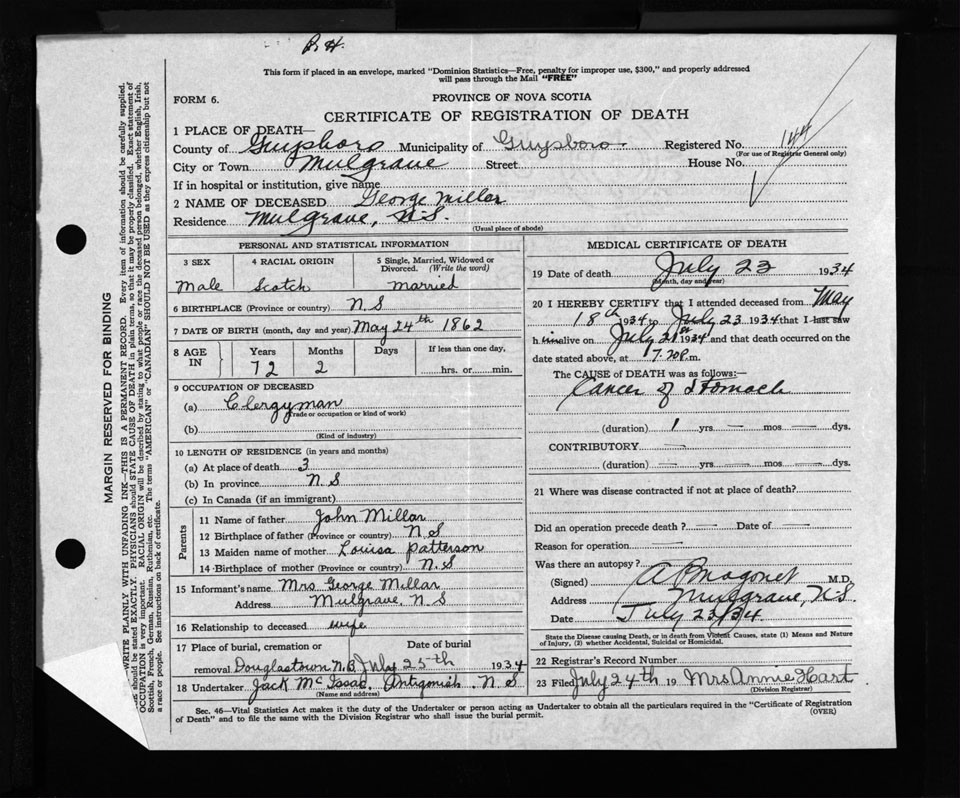 B. H.
This form if placed in an envelope, marked "Dominion Statistics—Free, penalty for improper use, $300," and properly addressed
will pass through the Mail "FREE"
FORM 6.
PROVINCE OF NOVA SCOTIA
CERTIFICATE OF REGISTRATION OF DEATH
1 PLACE OF DEATH—
County of Guysboro Municipality of Guysboro. Registered No. 144
(For use of Registrar General only)
City or Town Mulgrave Street House No.
If in hospital or institution, give name
2 NAME OF DECEASED George Millar
Residence Mulgrave, N.S.
(Usual place of abode)
PERSONAL AND STATISTICAL INFORMATION
3 SEX 4 RACIAL ORIGIN 5 Single, Married, Widowed or Divorced. (Write the word)
Male Scotch married
6 BIRTHPLACE (Province or country) N S
7 DATE OF BIRTH (month, day and year) May 24th 1862
8 AGE IN Years Months Days If less than one day,
72 2 hrs. or min.
9 OCCUPATION OF DECEASED
(a) Clergyman
(Trade or occupation or kind of work)
(b)
(Kind of industry)
10 LENGTH OF RESIDENCE (in years and months)
(a) At place of death 3
(b) In province N. S
(c) In Canada (if an immigrant)
Parents
11 Name of father John Millar
12 Birthplace of father (Province or country) N S
13 Maiden name of mother Louisa Patterson
14 Birthplace of mother (Province or country) N. S
15 Informant's name Mrs George Millar
Address Mulgrave, N S
16 Relationship to deceased wife
17 Place of burial, cremation or Date of burial
removal Douglastown N.B. July 25th 1934
18 Undertaker Jack McIsaac. Antigonish. N. S
(Name and address)
MEDICAL CERTIFICATE OF DEATH
19 Date of death July 23 1934
(Month, day and year)
20 I HEREBY CERTIFY that I attended deceased from May
18th 1934 to July 23 1934 that I last saw
h im alive on July 21st 1934 and that death occurred on the
date stated above, at 7.20 P.m.
The CAUSE of DEATH was as follows:—
Cancer of Stomach
(duration) 1 yrs — mos — dys.
CONTRIBUTORY —
(duration) — yrs. — mos. — dys.
21 Where was disease contracted if not at place of death?
Did an operation precede death? — Date of —
Reason for operation —
Was there an autopsy?
(Signed) M.D.
Address Mulgrave, N.S.
Date July 23/34.
State the Disease causing Death, or in death from Violent Causes, state (1) Means and Nature
of Injury, (2) whether Accidental, Suicidal or Homicidal.
22 Registrar's Record Number
23 Filed July 24th 19 Mrs Annie Hart
(Division Registrar)
Sec. 46—Vital Statistics Act makes it the duty of the Undertaker or person acting as Undertaker to obtain all the particulars required in the "Certificate of Registration
of Death" and to file the same with the Division Registrar who shall issue the burial permit. (OVER)
MARGIN RESERVED FOR BINDING
WRITE PLAINLY WITH UNFADING INK—THIS IS A PERMANENT RECORD. Every item of information should be carefully supplied.
should be stated EXACTLY. PHYSICIANS should STATE CAUSE OF DEATH in plain terms, so that it may be properly classified. Exact statement of
OCCUPATION is very important. RACIAL ORIGIN will be described by stating to what people or race the deceased person belonged, whether English, Irish,
Scottish, French, German, Russian, Ruthenian, etc. The terms "AMERICAN" or "CANADIAN" SHOULD NOT BE USED as they express citizenship but not
a race or people. See instructions on back of certificate.